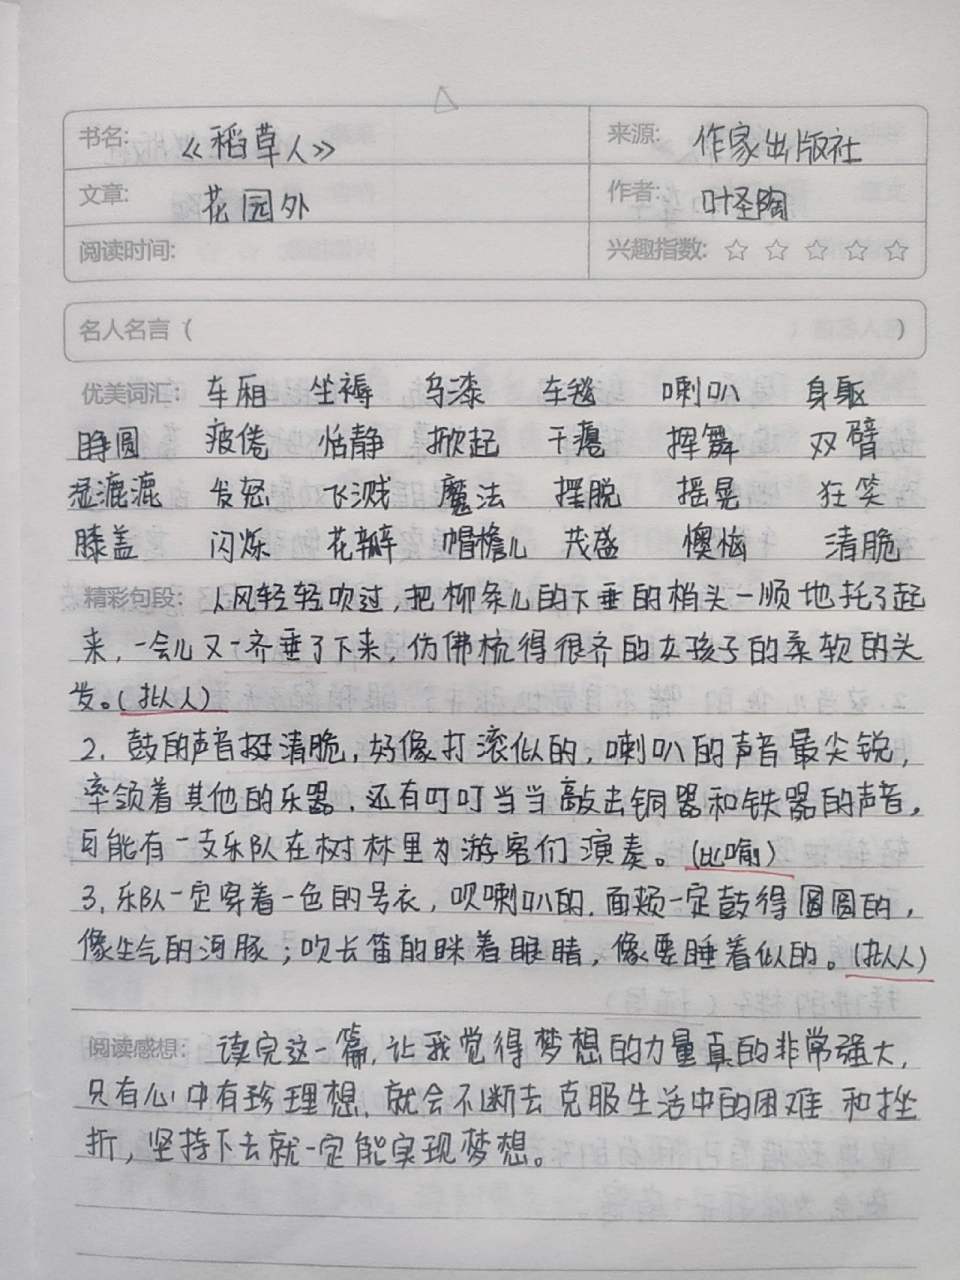 书名: 《稻草人》 来源: 作家出版社
文章: 花园外 作者: 叶圣陶
阅读时间: 兴趣指数: ☆ ☆ ☆ ☆ ☆
名人名言 ( )
优美词汇: 车厢 坐褥 乌漆 车毯 喇叭 身躯
睁圆 疲倦 恬静 掀起 干瘪 挥舞 双臂
湿漉漉 发怒 飞溅 魔法 摆脱 摇晃 狂笑
膝盖 闪烁 花瓣 帽檐儿 茂盛 懊恼 清脆
精彩句段: 1.风轻轻吹过,把柳条儿的下垂的梢头一顺地托了起
来,一会儿又一齐垂了下来,仿佛梳得很齐的女孩子的柔软的头
发。(拟人)
2. 鼓的声音挺清脆,好像打滚似的,喇叭的声音最尖锐,
率领着其他的乐器,还有叮叮当当敲击铜器和铁器的声音,
可能有一支乐队在树林里为游客们演奏。(比喻)
3.乐队一定穿着一色的号衣,吹喇叭的,面颊一定鼓得圆圆的,
像生气的河豚;吹长笛的眯着眼睛,像要睡着似的。(拟人)
阅读感想: 读完这一篇,让我觉得梦想的力量真的非常强大,
只有心中有珍理想,就会不断去克服生活中的困难和挫
折,坚持下去就一定能实现梦想。